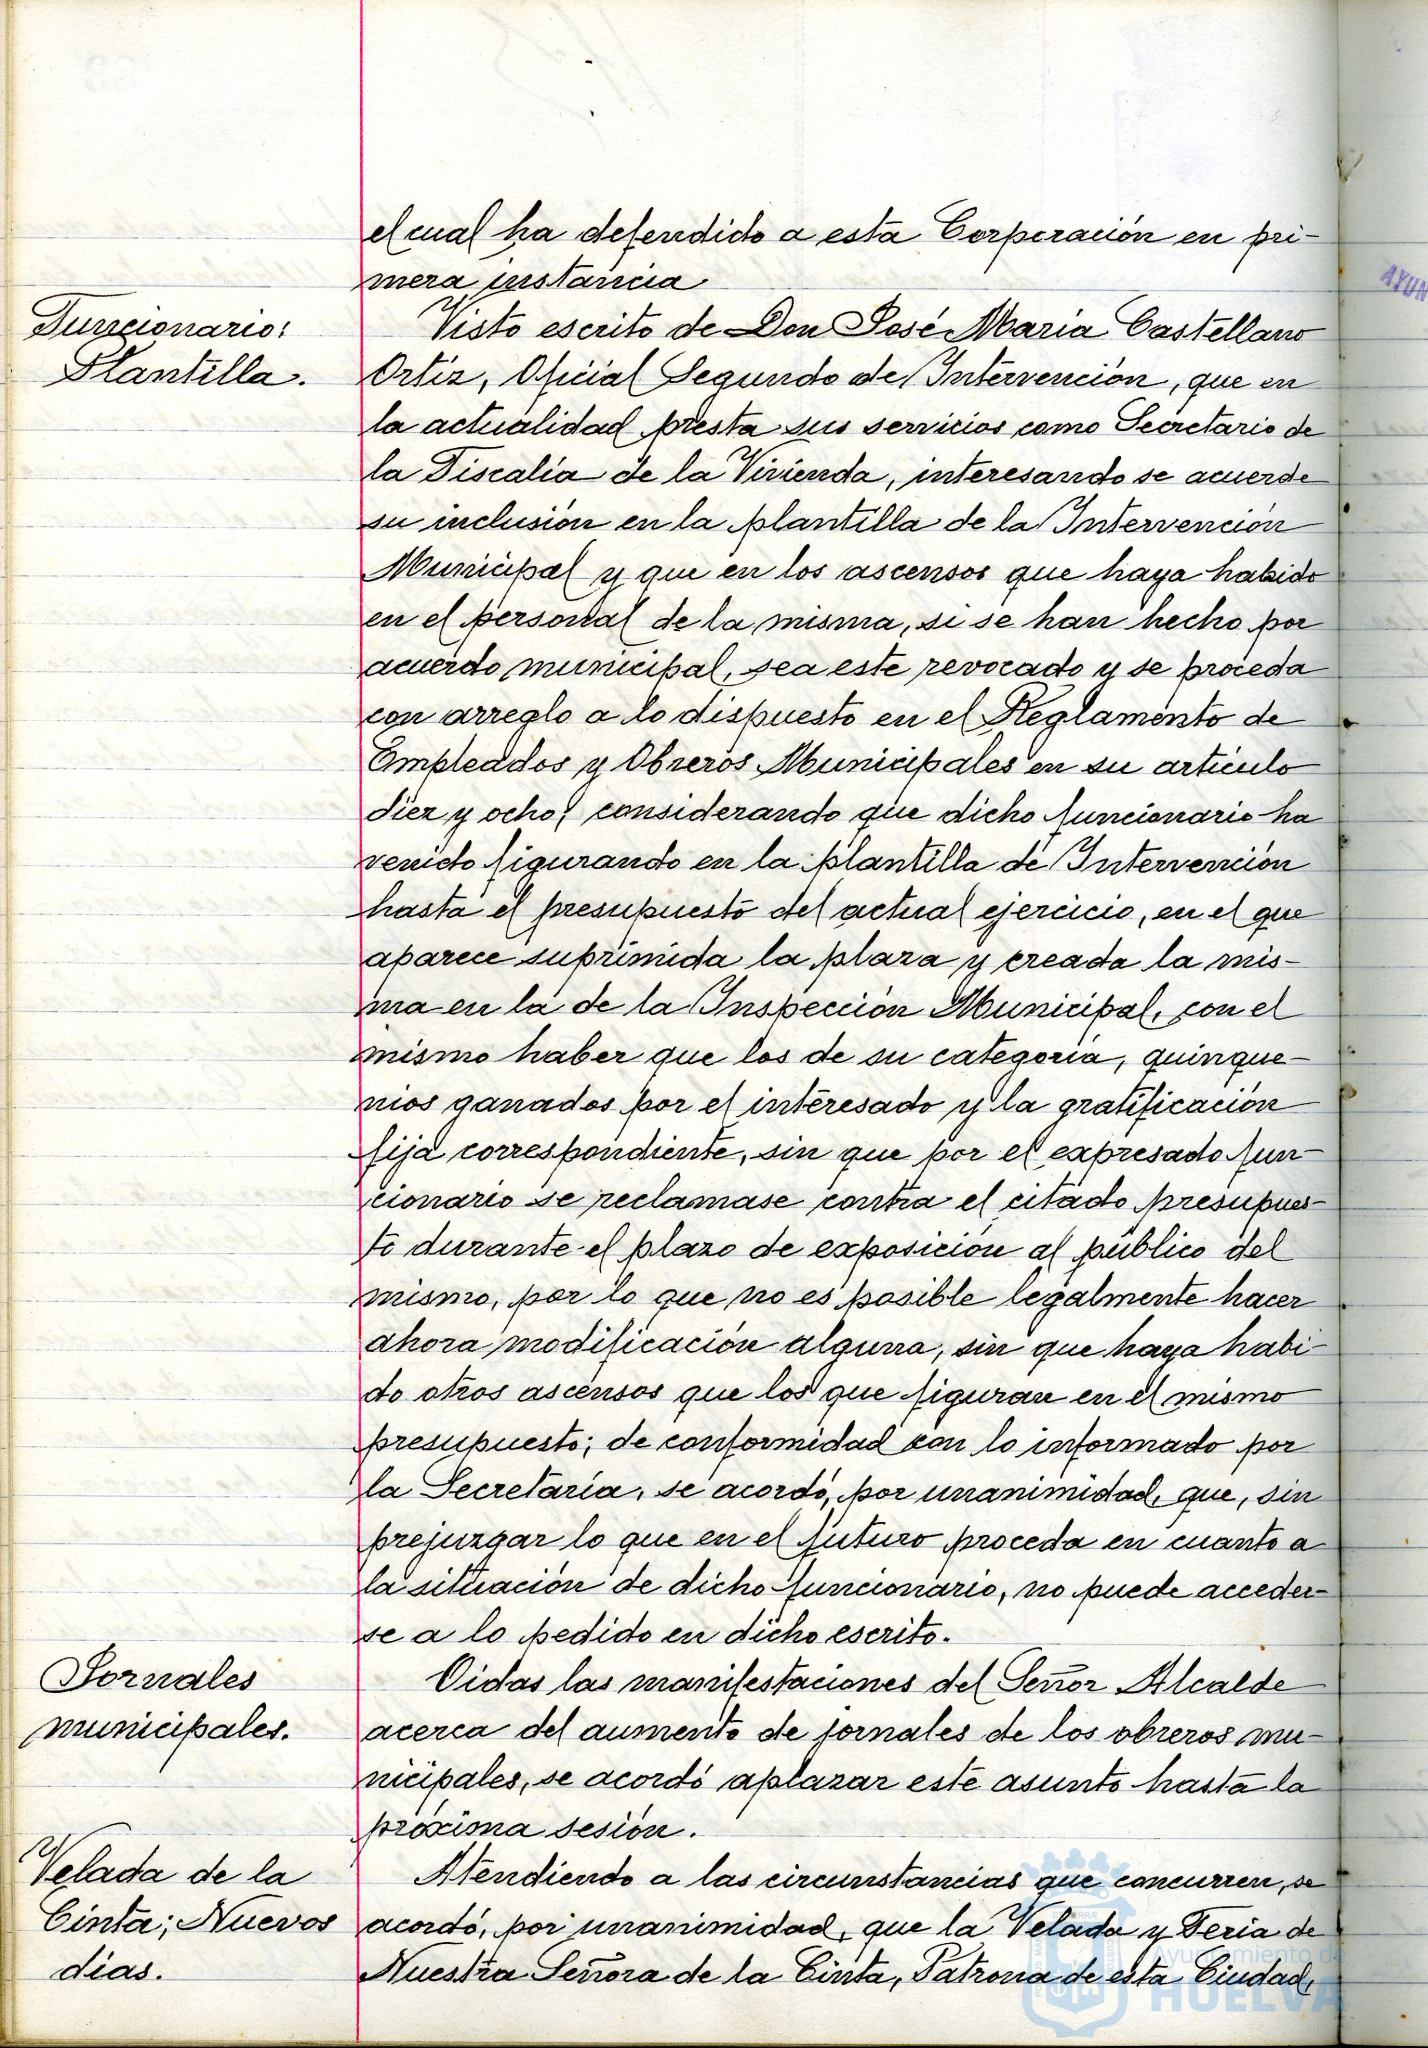 el cual ha defendido a esta Corporación en pri-
mera instancia
Funcionario:
Plantilla.
Visto escrito de Don José María Castellano
Ortiz, Oficial Segundo de Intervención, que en
la actualidad presta sus servicios como Secretario de
la Fiscalía de la Vivienda, interesando se acuerde
su inclusión en la plantilla de la Intervención
Municipal y que en los ascensos que haya habido
en el personal de la misma, si se han hecho por
acuerdo municipal, sea este revocado y se proceda
con arreglo a lo dispuesto en el Reglamento de
Empleados y Obreros Municipales en su artículo
diez y ocho; considerando que dicho funcionario ha
venido figurando en la plantilla de Intervención
hasta el presupuesto del actual ejercicio, en el que
aparece suprimida la plaza y creada la mis-
ma en la de la Inspección Municipal, con el
mismo haber que los de su categoría, quinque-
nios ganados por el interesado y la gratificación
fija correspondiente, sin que por el expresado fun-
cionario se reclamase contra el citado presupues-
to durante el plazo de exposición al público del
mismo, por lo que no es posible legalmente hacer
ahora modificación alguna, sin que haya habi-
do otros ascensos que los que figuran en el mismo
presupuesto; de conformidad con lo informado por
la Secretaría, se acordó, por unanimidad, que, sin
prejuzgar lo que en el futuro proceda en cuanto a
la situación de dicho funcionario, no puede acceder-
se a lo pedido en dicho escrito.
Jornales
municipales.
Oidas las manifestaciones del Señor Alcalde
acerca del aumento de jornales de los obreros mu-
nicipales, se acordó aplazar este asunto hasta la
próxima sesión.
Velada de la
Cinta; Nuevos
días.
Atendiendo a las circunstancias que concurren, se
acordó, por unanimidad, que la Velada y Feria de
Nuestra Señora de la Cinta, Patrona de esta Ciudad,
Ayuntamiento de
HUELVA
AYUN